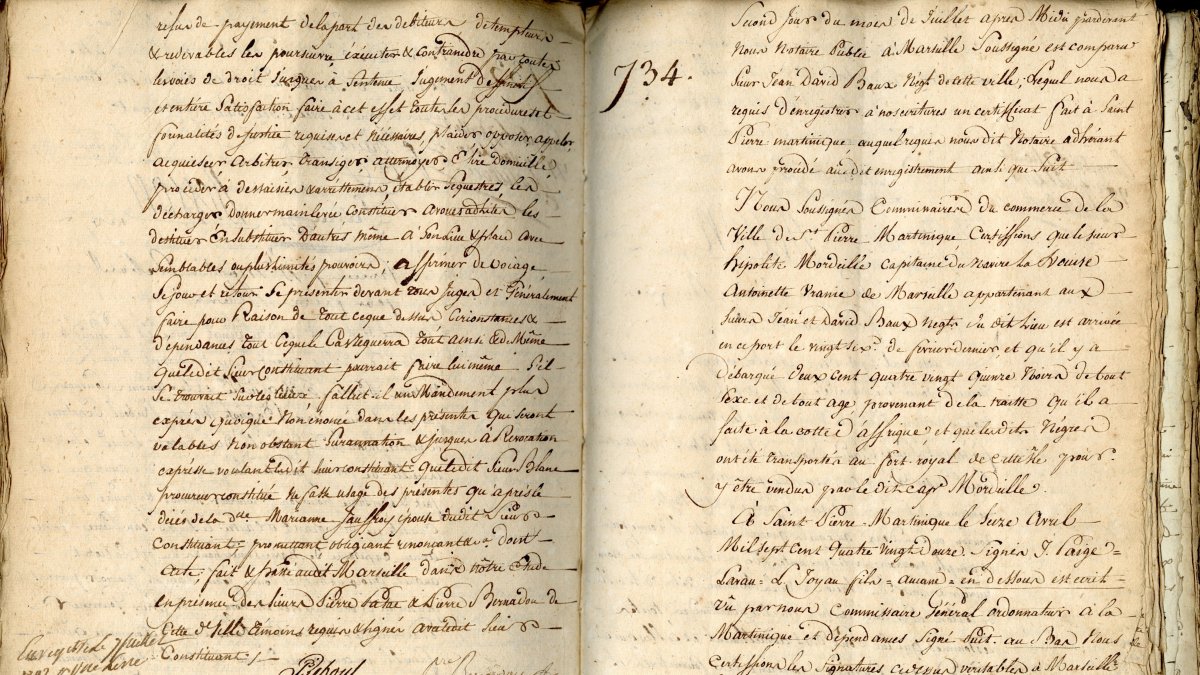 refus de payement de la part des debiteurs detempteurs
& redevables les poursuivre executer & contraindre par toutes
les voies de droit jusques à Sentence, Jugement deffinitif
et entière Satisfaction faire à cet effet toutes les procédures et
formalités de justice requises et nécessaires, plaider opposer appeler
acquiescer arbitrer transiger, attermoyer Elire domicille
procéder à dessaisies & arrettemens établir Sequestres, les
décharger donner mainlevée constituer avoués les
destituer En substituer D'autres même à Son lieu & place avec
Semblables ou plus limités pouvoirs; affirmer de voiage
Sejour et retour Se présenter devant tous Juges et Généralement
faire pour Raison de tout ce que dessus Circonstances &
dépendances tout Ceque le Cas requerra tout ainsi & de Même
que ledit Sieur constituant pourrait faire lui même S'il
Se trouvait Sur les lieux fallut-il un Mandement plus
exprès quoique Non énoncé dans les présentes Qui Seront
valables Non obstant Surannation & jusques à Révocation
expresse voulant ledit Sieur constituant Que ledit Sieur Blanc
procureur constitué ne fasse usage des présentes qu'après le
décès de la dlle Marianne Jauffroy épouse dudit Sieur
Constituant, promettant obligeant renonçant &a dont
acte, fait & passé audit Marseille dans nôtre Etude
en présence des Sieurs Pierre & Pierre Bernadou de
Cette de Ville témoins requis & signés avec ledit Sieur
Constituant /.
Enregistré le 7 juillet
734.
Second Jour du mois de Juillet après Midi pardevant
Nous Notaire Public à Marseille Soussigné est comparu
Sieur Jean David Baux Négt de cette ville; Lequel nous a
requis d'enregistrer à nos ecritures un certifficat fait à Saint
Pierre martinique auquel requis nousdit Notaire adhérant
avons procédé audit enregistrement ainsi que Suit
Nous Soussignés Commissaires du commerce de la
Ville de St Pierre Martinique Certiffions que le sieur
hipolite Mordeille capitaine du Navire la Louise
Antoinette Uranie de Marseille appartenant aux
sieurs Jean et David Baux Negts du dit lieu est arrivée
en ce port le vingt six de fevrier dernier et qu'il y a
débarqué deux cent quatre vingt quinze Noirs de tout
Sexe et de tout age provenant de la traitte qu'il a
faite à la cotte d'affrique, et que lesdits Négres
ont été transportés au fort royal de cette ile pour
y être vendus par le dit Cape Mordeille.
à Saint Pierre Martinique le Seize Avril
Mil sept cent Quatre vingt douze, Signés J. Paige =
Lavau = L Joyau fils = = en dessous est ecrit =
vû par nous Commissaire Général ordonnateur à la
Martinique et dépendances Signé au Bas Nous
Certiffions les Signatures cidessus veritables à Marseille